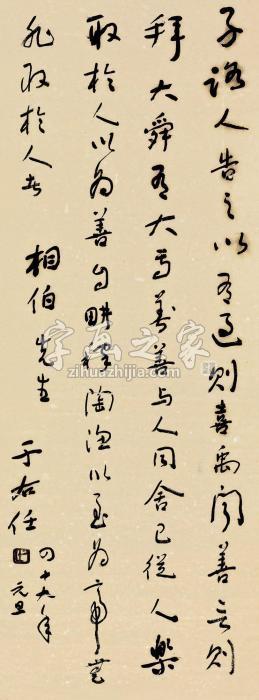 子路人告之以有过则喜禹闻善言则
拜大舜有大焉善与人同舍己从人乐
取于人以为善自耕稼陶渔以至为帝无
非取于人者
相伯先生
于右任
四十九年元旦
字画之家
zihuazhijia.com